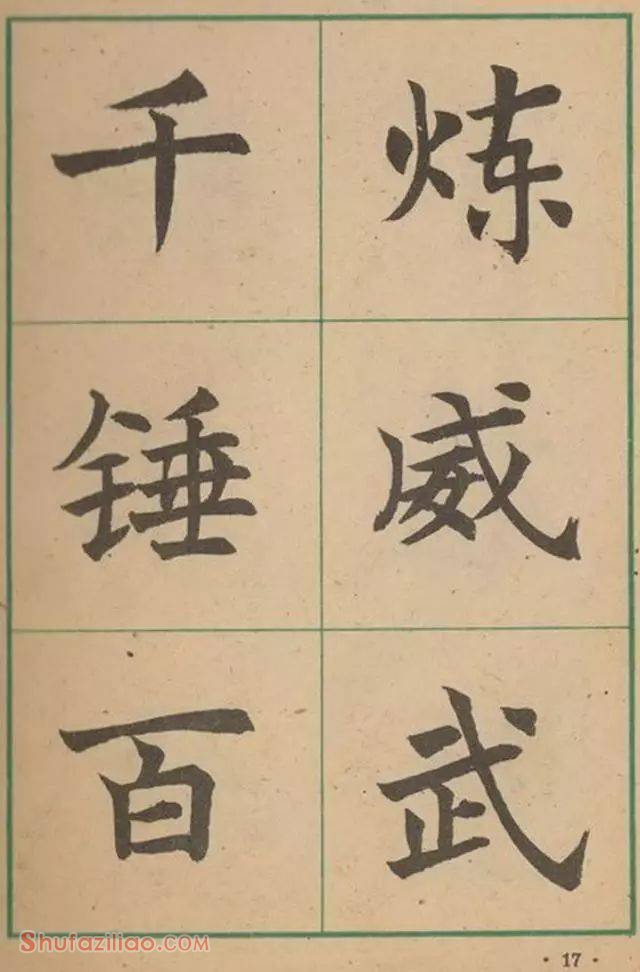 千锤百
炼威武
Shufaziliao.com
· 17 ·